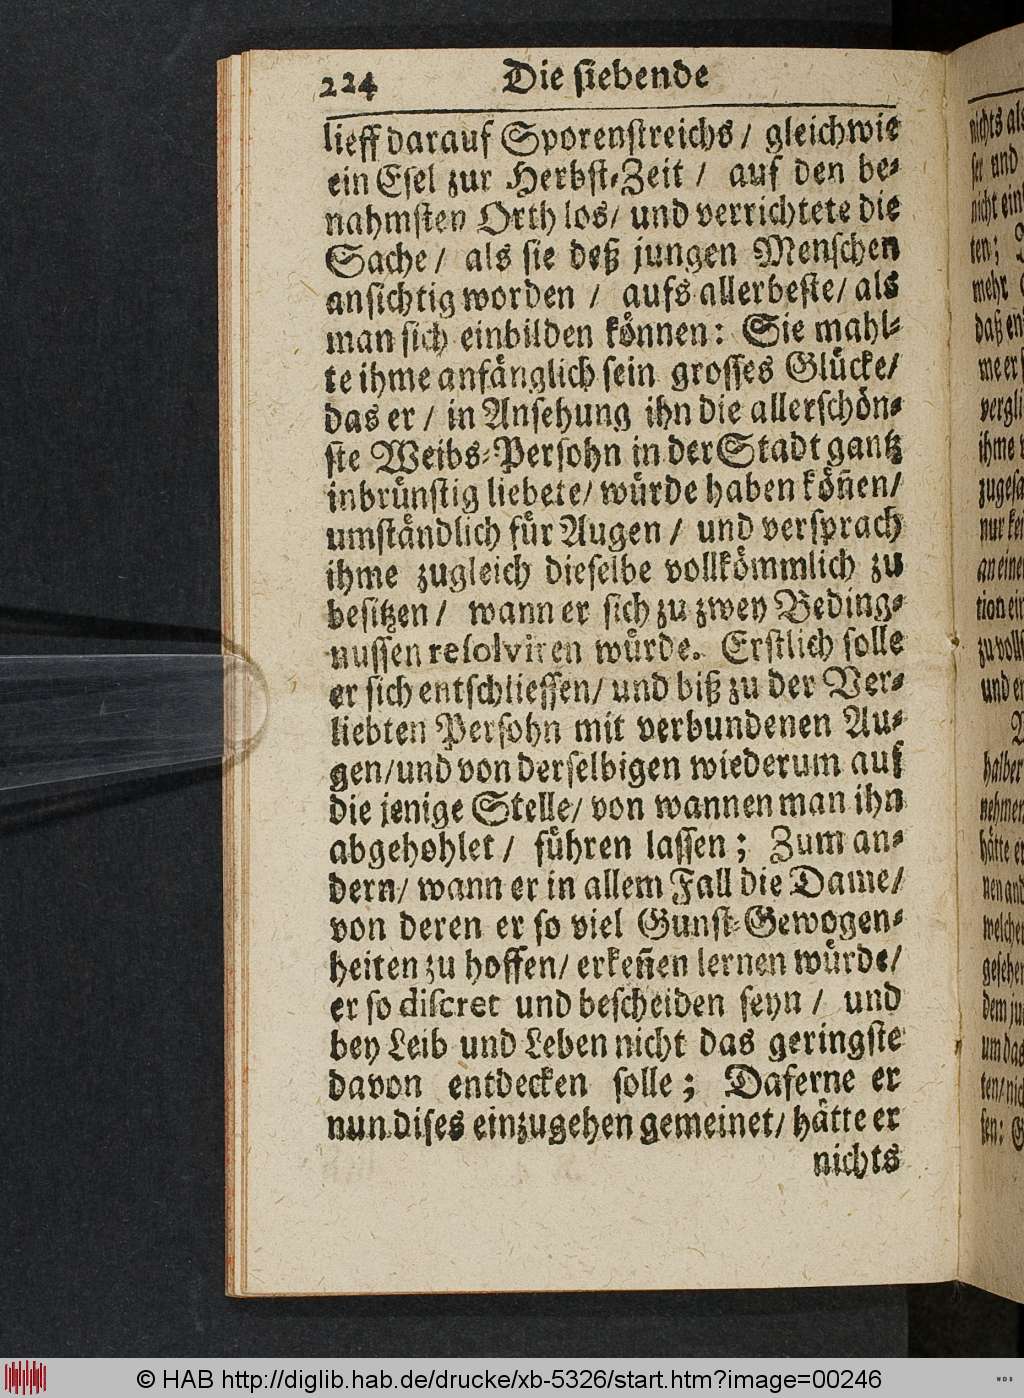 224 Die ſiebende
lieff darauf Sporenſtreichs / gleichwie
ein Eſel zur Herbſt-Zeit / auf den be-
nahmſten Orth los / und verrichtete die
Sache / als ſie deß jungen Menſchen
anſichtig worden / aufs allerbeſte / als
man ſich einbilden können: Sie mahl-
te ihme anfänglich ſein groſſes Glücke /
das er / in Anſehung ihn die allerſchön-
ſte Weibs-Perſohn in der Stadt gantz
inbrünſtig liebete / würde haben könn̄en /
umſtändlich für Augen / und verſprach
ihme zugleich dieſelbe vollkömmlich zu
beſitzen / wann er ſich zu zwey Beding-
nuſſen reſolviren würde. Erſtlich ſolle
er ſich entſchlieſſen / und biß zu der Ver-
liebten Perſohn mit verbundenen Au-
gen / und von derſelbigen wiederum auf
die jenige Stelle / von wannen man ihn
abgehohlet / führen laſſen; Zum an-
dern / wann er in allem Fall die Dame /
von deren er ſo viel Gunſt-Gewogen-
heiten zu hoffen / erken̄en lernen würde /
er ſo diſcret und beſcheiden ſeyn / und
bey Leib und Leben nicht das geringſte
davon entdecken ſolle; Daferne er
nun diſes einzugehen gemeinet / hätte er
nichts
nichts als
ſet und
nicht ein
ten;
mehr
daß en
me er
vergli
ihme
zugeſa
nur
an eine
tion ein
zu voll
und er
halber
nehmen
hätte er
nen and
welche
geſehen
dem ju
um das
ten / nic
ſen:
© HAB http://diglib.hab.de/drucke/xb-5326/start.htm?image=00246